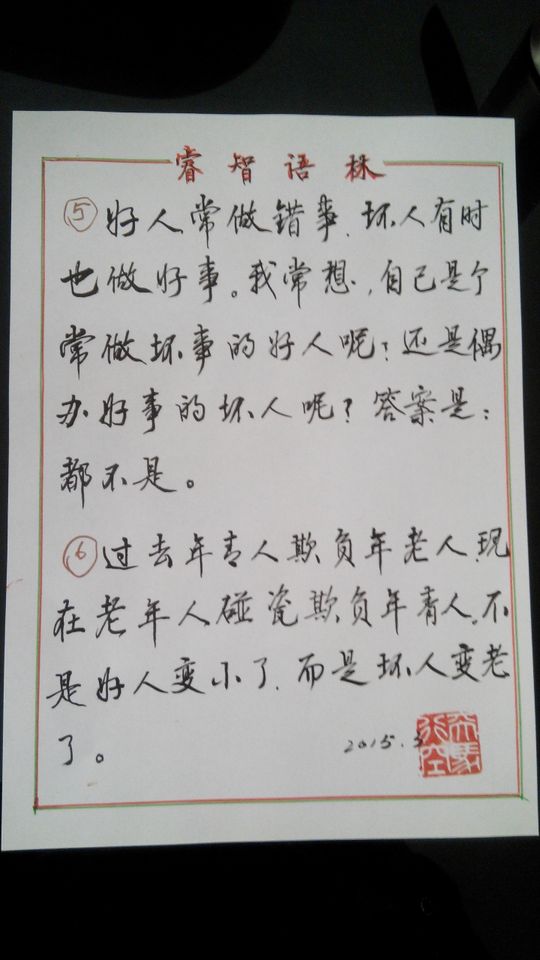 睿智语林
⑤好人常做错事、坏人有时
也做好事。我常想,自己是个
常做坏事的好人呢?还是偶
办好事的坏人呢?答案是:
都不是。
⑥过去年青人欺负年老人,现
在老年人碰瓷欺负年青人。不
是好人变小了、而是坏人变老
了。
2015.3